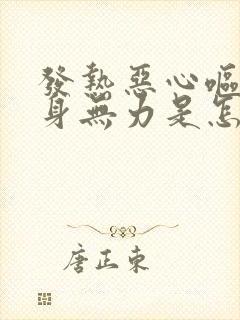 發熱惡心嘔
身無力是怎
唐正東